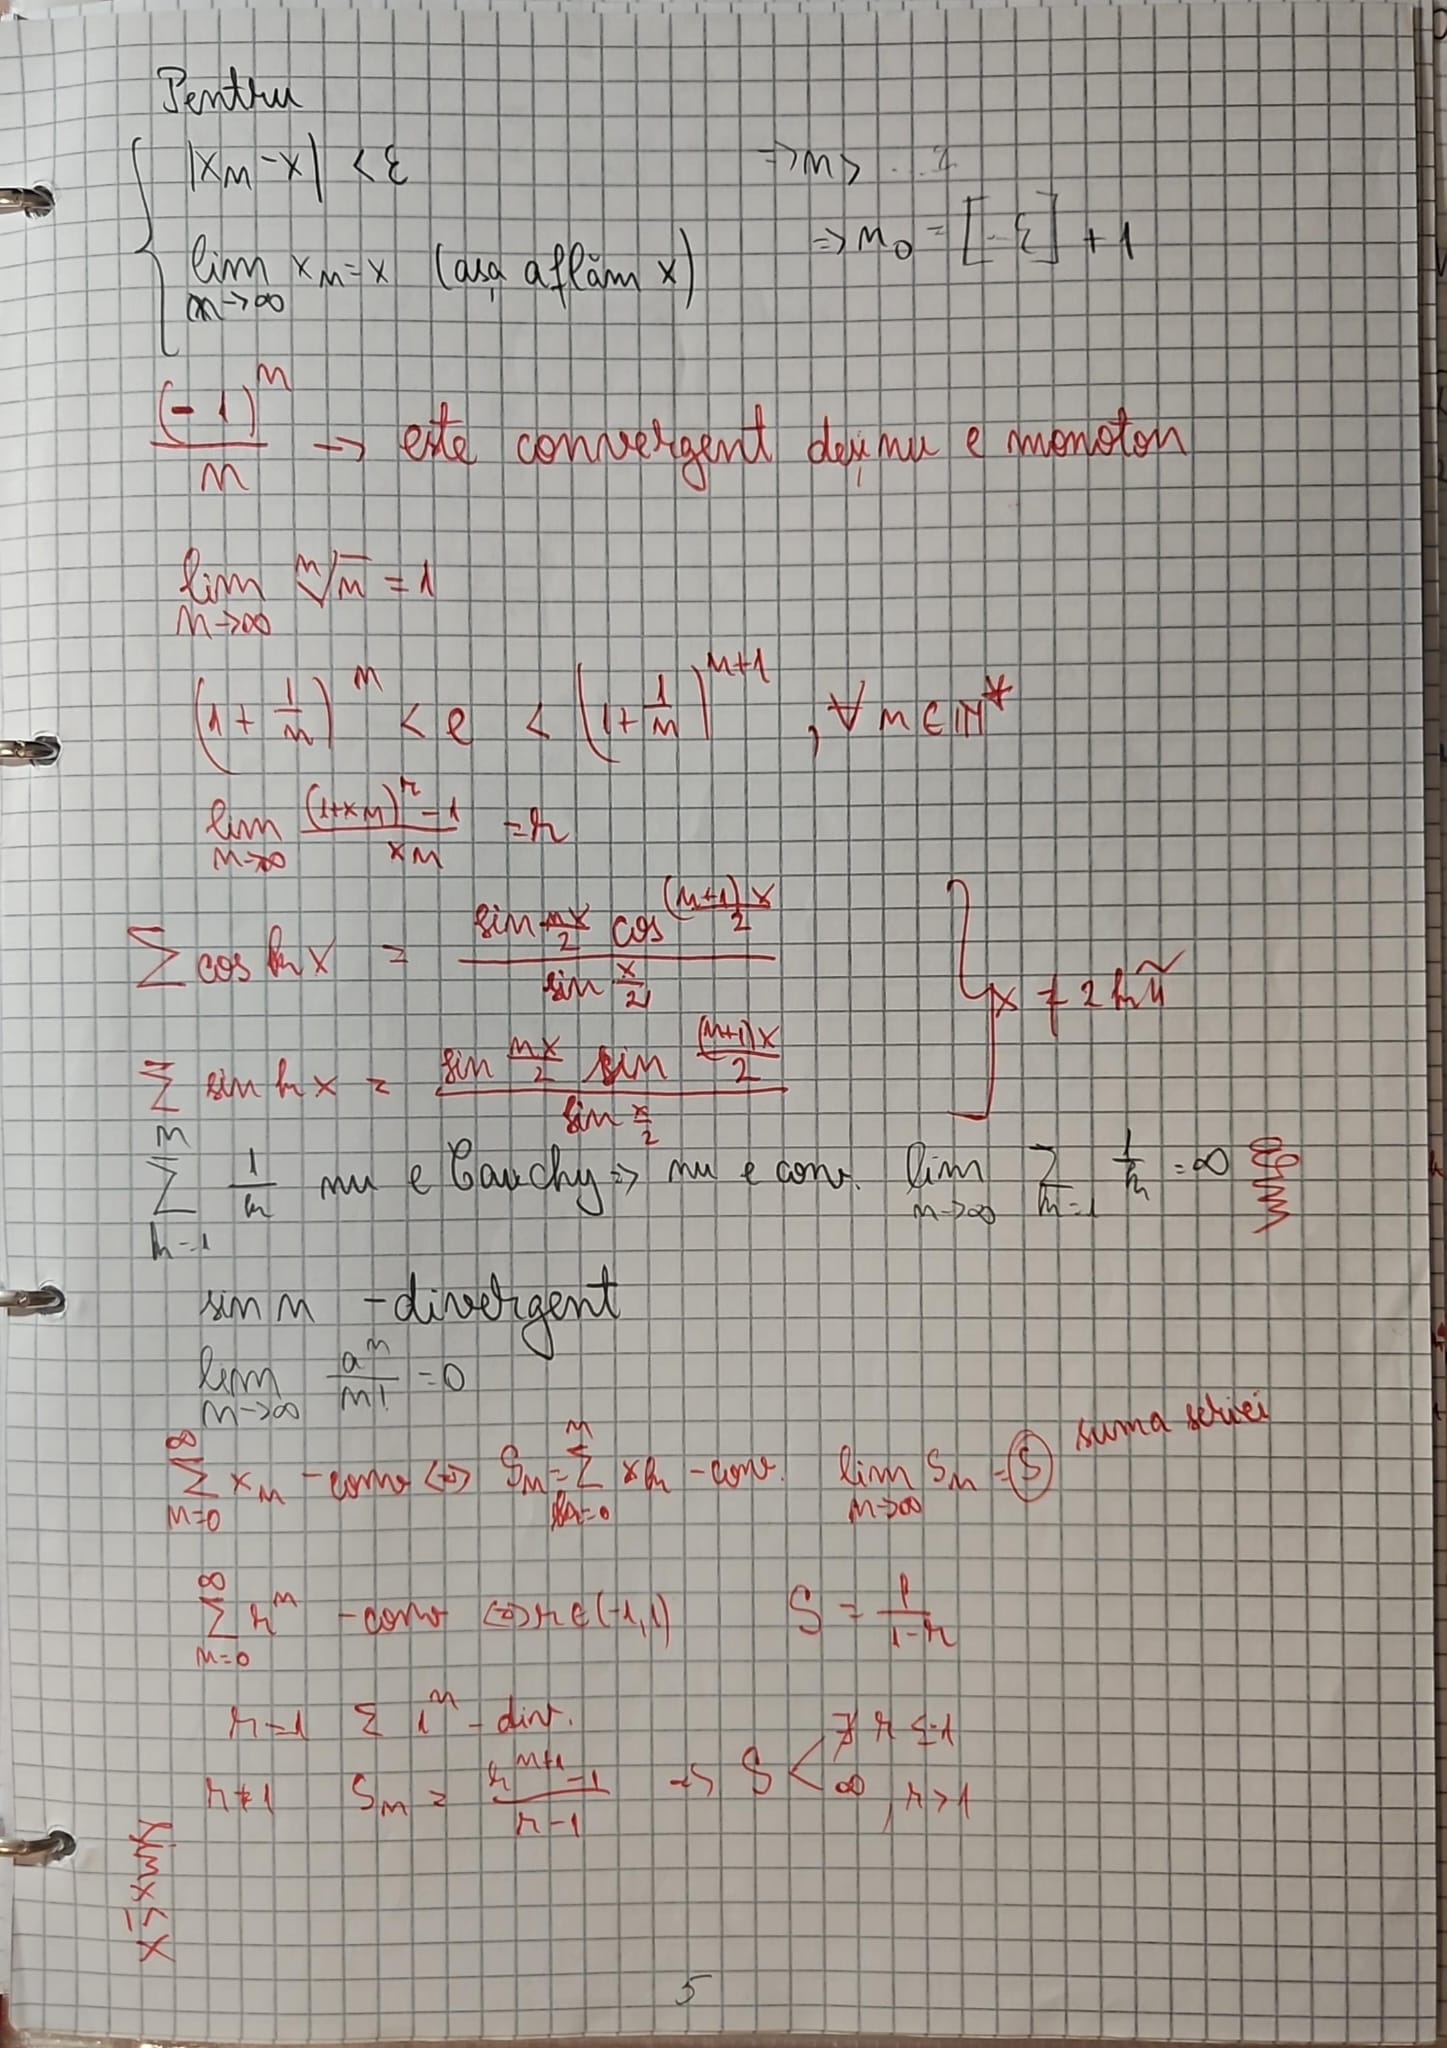 Pentru
|xn - x| < ε => n > ...
lim n→∞ xn = x (așa aflăm x) => n0 = [..ε] + 1
(-1)^n / n → este convergent deși nu e monoton
lim n→∞ ⁿ√n = 1
(1 + 1/n)^n < e < (1 + 1/n)^(n+1), ∀ n ∈ ℕ*
lim n→∞ ((1+xn)^r - 1) / xn = r
∑ cos kx = (sin nx/2 cos (n+1)x/2) / (sin x/2)
x ≠ 2kπ
∑ sin kx = (sin nx/2 sin (n+1)x/2) / (sin x/2)
∑_{k=1}^{n} 1/k nu e Cauchy => nu e conv. lim n→∞ ∑_{k=1} 1/k = ∞
sin n - divergent
lim n→∞ a^n / n! = 0
suma seriei
∑_{n=0}^{∞} xn - conv <=> Sn = ∑_{k=0}^{n} xk - conv. lim n→∞ Sn = S
∑_{n=0}^{∞} r^n - conv <=> r ∈ (-1,1) S = 1/(1-r)
r=1 ∑ 1^n - div.
r≠1 Sn = (r^(n+1) - 1) / (r-1) → S < ∄ r ≤ -1
∞, r > 1
5